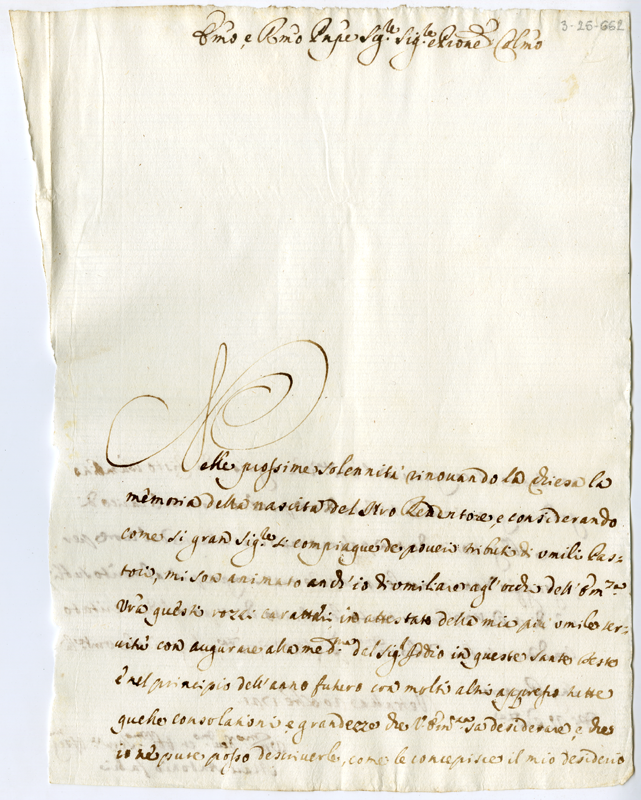 3-25-662
Emo, e Rmo Pnpe Sig.le Sig.le e Prone Colmo
Nelle prossime solennità rinouando la Chiesa la
memoria della nascita del Nro Redentore e considerando
come si gran Sig.le si compiaque de poueri tributi di vmili Pas-
tori, mi son animato anch'io di vmiliare agl'occhi dell'Em.za
Vrã questi rozzi caratteri in attestato della mia più vmile ser-
uitù con augurare alla med.ma dal Sig.l Iddio in queste Sante feste
è nel principio dell'anno futuro con molti altri appresso tutte
quelle consolationi, e grandezze che l'Em.za sa desiderare e che
io nè pure posso descriuerle, come le concepisce il mio desiderio